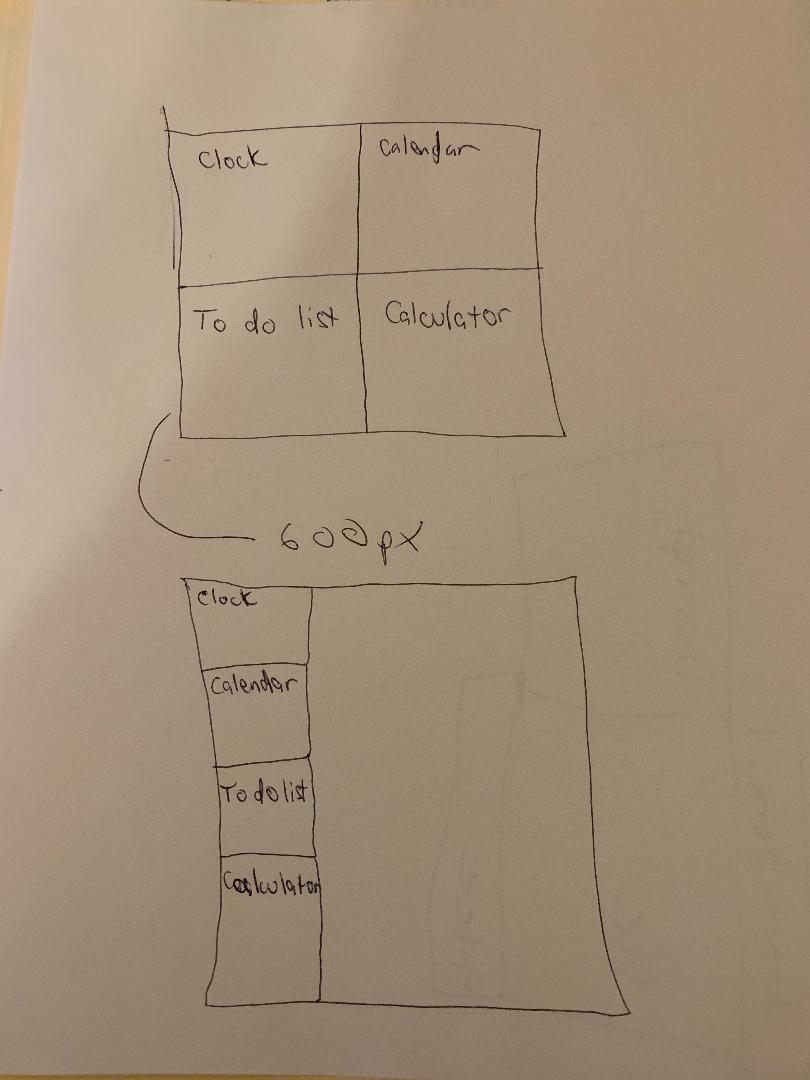 Clock
Calendar
To do list
Calculator
600px
Clock
Calendar
To do list
Calculator